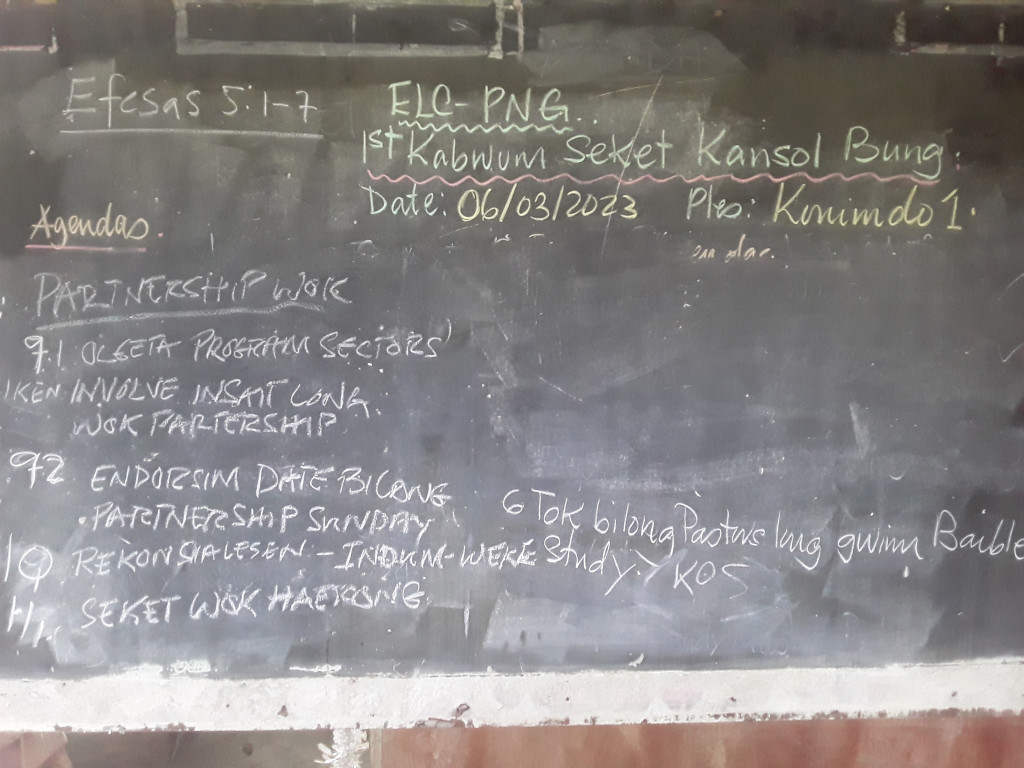 Efesas 5:1-7
ELC-PNG..
1st Kabwum Seket Kansol Bung.
Date: 06/03/2023 Ples: Konimdo 1.
Agendas.
PARTNERSHIP WOK
9.1 OLGETA PROGRAM SECTORS
IKEN INVOLVE INSAIT LONG
WOK PARTERSHIP
92 ENDORSIM DATE BILONG
PARTNERSHIP SUNDAY
10 REKONSIALESEN - INDUM-WEKE
11. SEKET WOK HAERONG
6 Tok bilong Pastors long givim Baible
Study > KOS